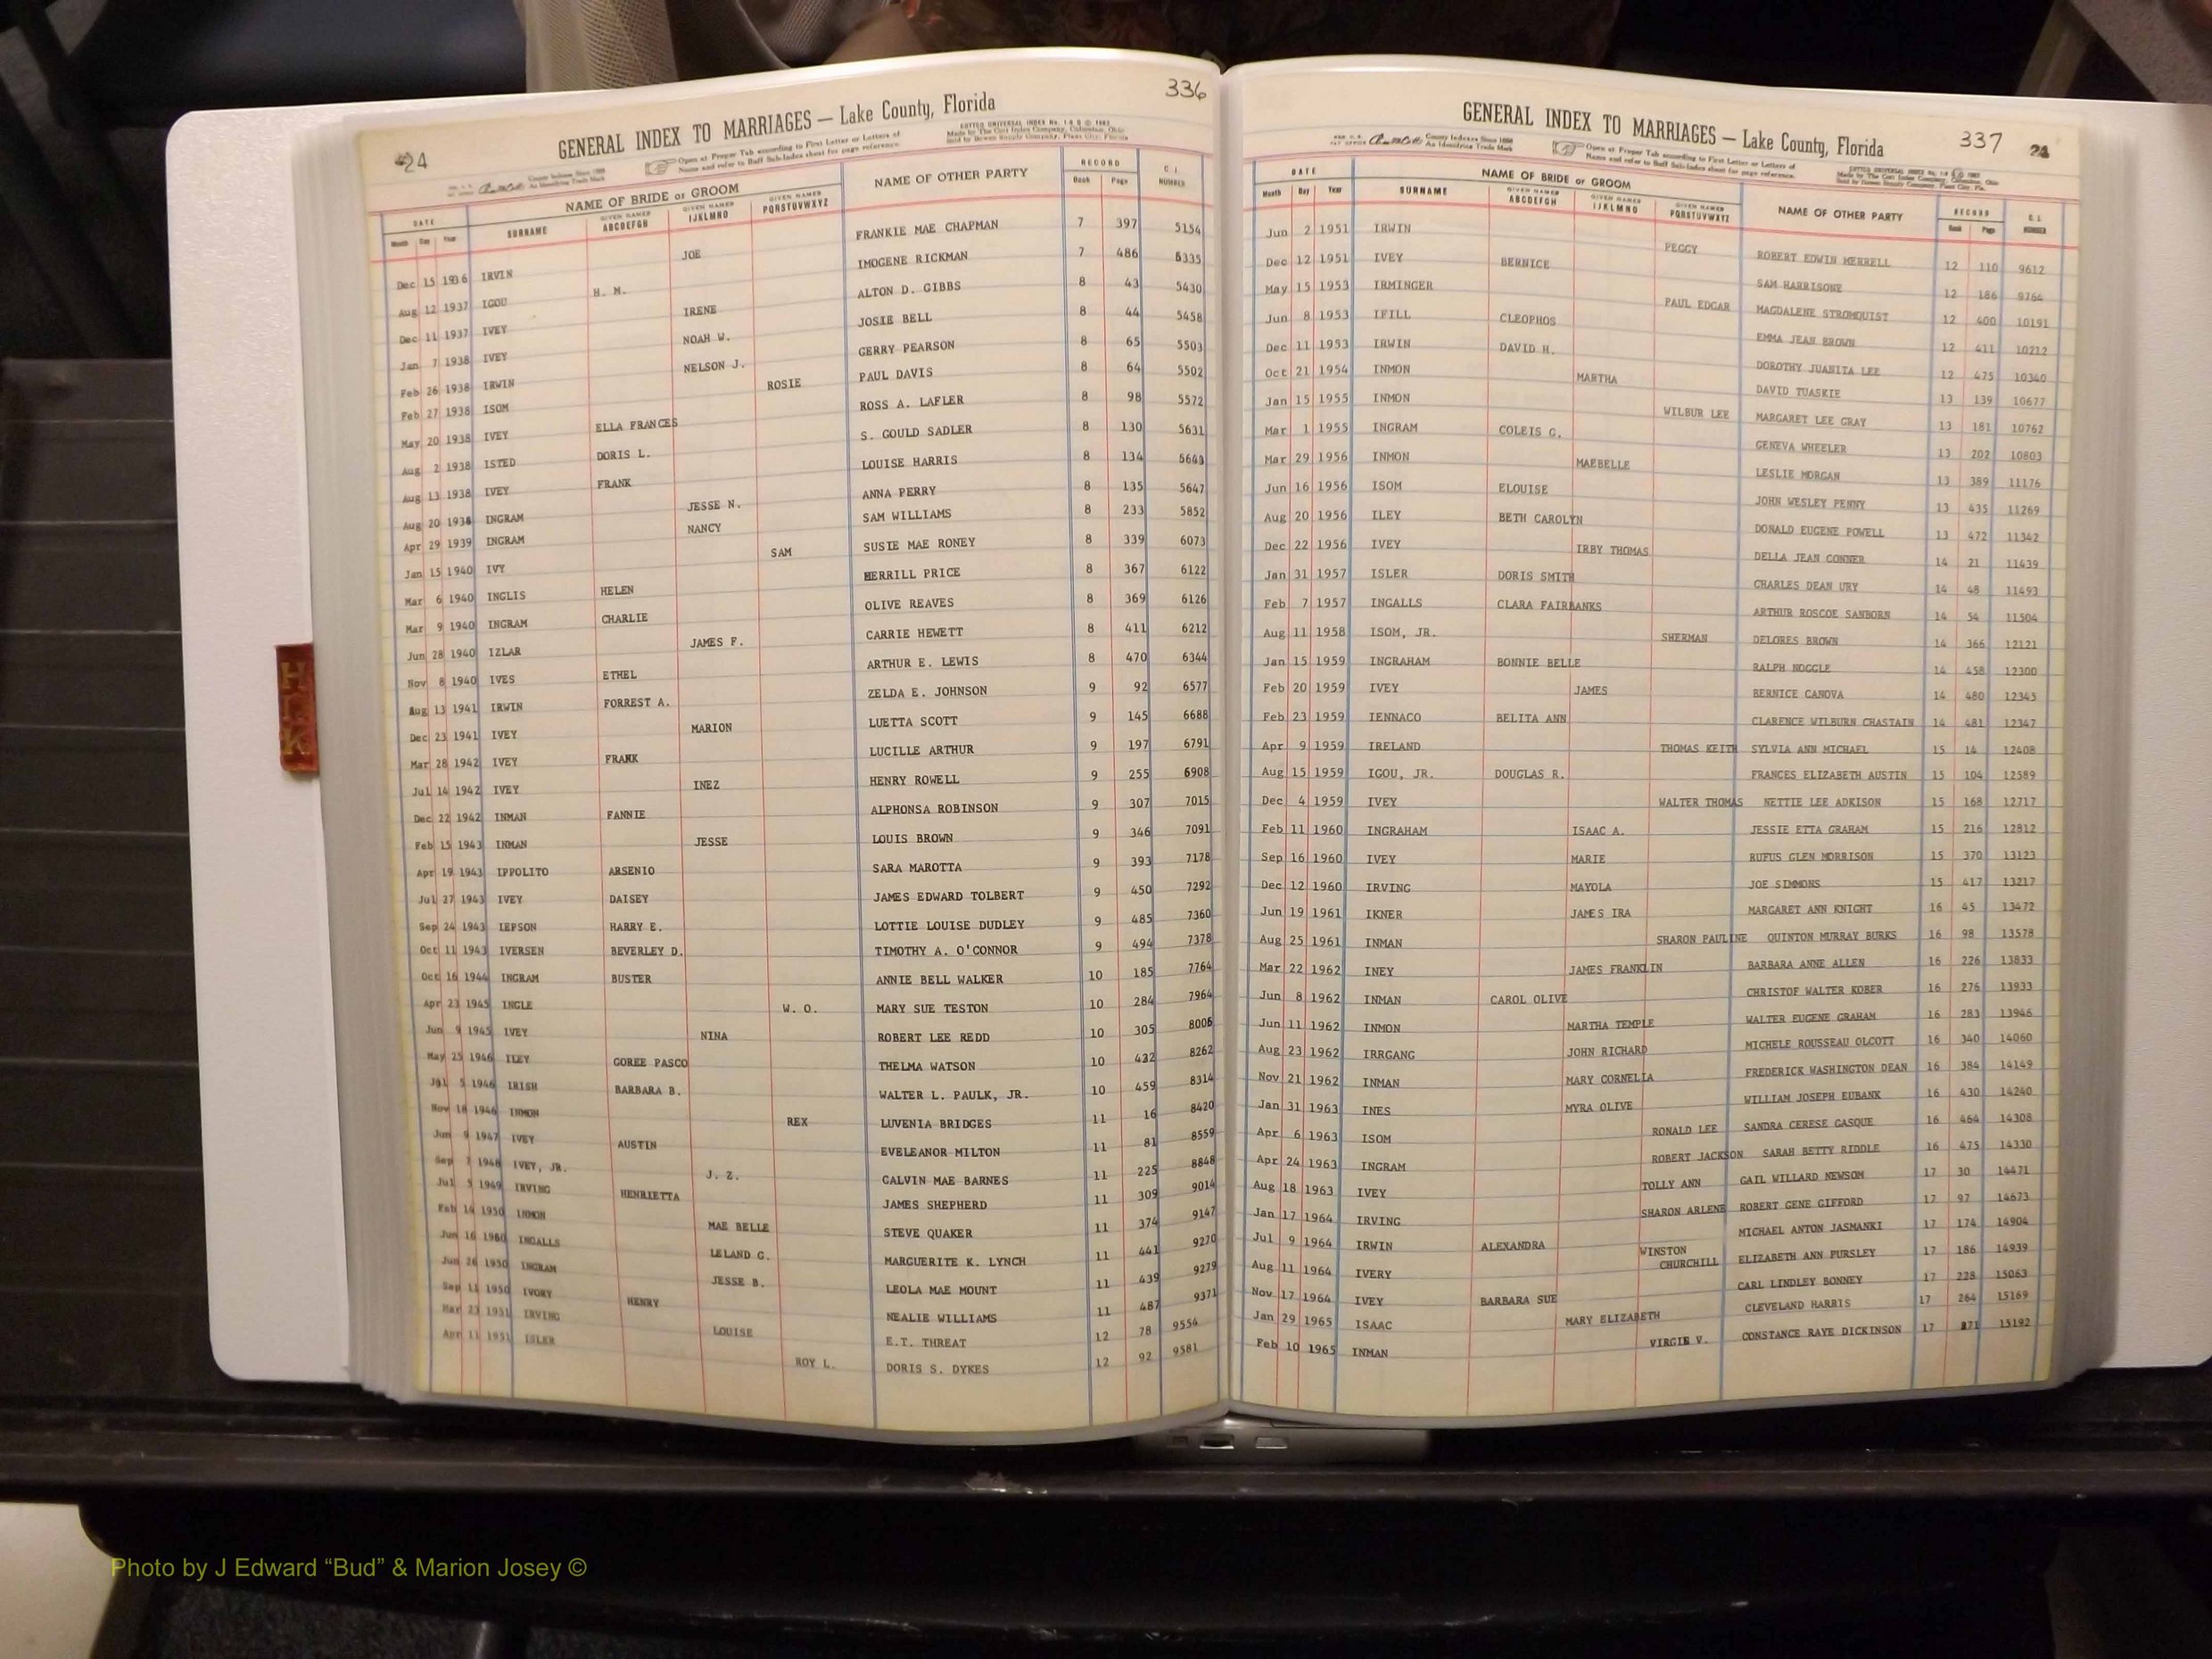 336
24
GENERAL INDEX TO MARRIAGES — Lake County, Florida
Open at Proper Tab according to First Letter or Letters of
Name and refer to Buff Sub-Index sheet for page reference.
DATE NAME OF BRIDE or GROOM NAME OF OTHER PARTY RECORD C. I. NUMBER
Month Day Year SURNAME GIVEN NAMES ABCDEFGH GIVEN NAMES IJKLMNO GIVEN NAMES PQRSTUVWXYZ Book Page
Dec 15 1936 IRVIN JOE FRANKIE MAE CHAPMAN 7 397 5154
Aug 12 1937 IGOU H. M. IMOGENE RICKMAN 7 486 5335
Dec 11 1937 IVEY IRENE ALTON D. GIBBS 8 43 5430
Jan 7 1938 IVEY NOAH W. JOSIE BELL 8 44 5458
Feb 26 1938 IRWIN NELSON J. GERRY PEARSON 8 65 5503
Feb 27 1938 ISOM ROSIE PAUL DAVIS 8 64 5502
May 20 1938 IVEY ELLA FRANCES ROSS A. LAFLER 8 98 5572
Aug 2 1938 ISTED DORIS L. S. GOULD SADLER 8 130 5631
Aug 13 1938 IVEY FRANK LOUISE HARRIS 8 134
Aug 20 1938 INGRAM JESSE N. ANNA PERRY 8 135 5647
Apr 29 1939 INGRAM NANCY SAM WILLIAMS 8 233 5852
Jan 15 1940 IVY SAM SUSIE MAE RONEY 8 339 6073
Mar 6 1940 INGLIS HELEN MERRILL PRICE 8 367 6122
Mar 9 1940 INGRAM CHARLIE OLIVE REAVES 8 369 6126
Jun 28 1940 IZLAR JAMES F. CARRIE HEWETT 8 411 6212
Nov 8 1940 IVES ETHEL ARTHUR E. LEWIS 8 470 6344
Aug 13 1941 IRWIN FORREST A. ZELDA E. JOHNSON 9 92 6577
Dec 23 1941 IVEY MARION LUETTA SCOTT 9 145 6688
Mar 28 1942 IVEY FRANK LUCILLE ARTHUR 9 197 6791
Jul 14 1942 IVEY INEZ HENRY ROWELL 9 255 6908
Dec 22 1942 INMAN FANNIE ALPHONSA ROBINSON 9 307 7015
Feb 15 1943 INMAN JESSE LOUIS BROWN 9 346 7091
Apr 19 1943 IPPOLITO ARSENIO SARA MAROTTA 9 393 7178
Jul 27 1943 IVEY DAISEY JAMES EDWARD TOLBERT 9 450 7292
Sep 24 1943 IEPSON HARRY E. LOTTIE LOUISE DUDLEY 9 485 7360
Oct 11 1943 IVERSEN BEVERLEY D. TIMOTHY A. O'CONNOR 9 494 7378
Oct 16 1944 INGRAM BUSTER ANNIE BELL WALKER 10 185 7764
Apr 23 1945 INGLE W. O. MARY SUE TESTON 10 284 7964
Jun 9 1945 IVEY NINA ROBERT LEE REDD 10 305 8006
May 25 1946 ILEY GOREE PASCO THELMA WATSON 10 432 8262
Jul 5 1946 IRISH BARBARA B. WALTER L. PAULK, JR. 10 459 8314
Nov 18 1946 INMON REX LUVENIA BRIDGES 11 16 8420
Jun 9 1947 IVEY AUSTIN EVELEANOR MILTON 11 81 8559
Sep 7 1948 IVEY, JR. J. Z. CALVIN MAE BARNES 11 225 8848
Jul 5 1949 IRVING HENRIETTA JAMES SHEPHERD 11 309 9014
Feb 14 1950 INMON MAE BELLE STEVE QUAKER 11 374 9147
Jun 16 INGALLS LELAND G. MARGUERITE K. LYNCH 11 441 9270
Jun 26 1950 INGRAM JESSE B. LEOLA MAE MOUNT 11 439 9279
Sep 11 1950 IVORY HENRY NEALIE WILLIAMS 11 487 9371
Mar 23 1951 IRVING LOUISE E.T. THREAT 12 78 9554
Apr 11 1951 ISLER ROY L. DORIS S. DYKES 12 92 9581
GENERAL INDEX TO MARRIAGES — Lake County, Florida 337 24
Open at Proper Tab according to First Letter or Letters of
Name and refer to Buff Sub-Index sheet for page reference.
DATE NAME OF BRIDE or GROOM NAME OF OTHER PARTY RECORD C. I. NUMBER
Month Day Year SURNAME GIVEN NAMES ABCDEFGH GIVEN NAMES IJKLMNO GIVEN NAMES PQRSTUVWXYZ Book Page
Jun 2 1951 IRWIN PEGGY ROBERT EDWIN MERRELL 12 110 9612
Dec 12 1951 IVEY BERNICE SAM HARRISONE 12 186 9764
May 15 1953 IRMINGER PAUL EDGAR MAGDALENE STROMQUIST 12 400 10191
Jun 8 1953 IFILL CLEOPHOS EMMA JEAN BROWN 12 411 10212
Dec 11 1953 IRWIN DAVID H. DOROTHY JUANITA LEE 12 475 10340
Oct 21 1954 INMON MARTHA DAVID TUASKIE 13 139 10677
Jan 15 1955 INMON WILBUR LEE MARGARET LEE GRAY 13 181 10762
Mar 1 1955 INGRAM COLEIS G. GENEVA WHEELER 13 202 10803
Mar 29 1956 INMON MAEBELLE LESLIE MORGAN 13 389 11176
Jun 16 1956 ISOM ELOUISE JOHN WESLEY PENNY 13 435 11269
Aug 20 1956 ILEY BETH CAROLYN DONALD EUGENE POWELL 13 472 11342
Dec 22 1956 IVEY IRBY THOMAS DELLA JEAN CONNER 14 21 11439
Jan 31 1957 ISLER DORIS SMITH CHARLES DEAN URY 14 48 11493
Feb 7 1957 INGALLS CLARA FAIRBANKS ARTHUR ROSCOE SANBORN 14 54 11504
Aug 11 1958 ISOM, JR. SHERMAN DELORES BROWN 14 366 12121
Jan 15 1959 INGRAHAM BONNIE BELLE RALPH NOGGLE 14 458 12300
Feb 20 1959 IVEY JAMES BERNICE CANOVA 14 480 12345
Feb 23 1959 IENNACO BELITA ANN CLARENCE WILBURN CHASTAIN 14 481 12347
Apr 9 1959 IRELAND THOMAS KEITH SYLVIA ANN MICHAEL 15 14 12408
Aug 15 1959 IGOU, JR. DOUGLAS R. FRANCES ELIZABETH AUSTIN 15 104 12589
Dec 4 1959 IVEY WALTER THOMAS NETTIE LEE ADKISON 15 168 12717
Feb 11 1960 INGRAHAM ISAAC A. JESSIE ETTA GRAHAM 15 216 12812
Sep 16 1960 IVEY MARIE RUFUS GLEN MORRISON 15 370 13123
Dec 12 1960 IRVING MAYOLA JOE SIMMONS 15 417 13217
Jun 19 1961 IKNER JAMES IRA MARGARET ANN KNIGHT 16 45 13472
Aug 25 1961 INMAN SHARON PAULINE QUINTON MURRAY BURKS 16 98 13578
Mar 22 1962 INEY JAMES FRANKLIN BARBARA ANNE ALLEN 16 226 13833
Jun 8 1962 INMAN CAROL OLIVE CHRISTOF WALTER KOBER 16 276 13933
Jun 11 1962 INMON MARTHA TEMPLE WALTER EUGENE GRAHAM 16 283 13946
Aug 23 1962 IRRGANG JOHN RICHARD MICHELE ROUSSEAU OLCOTT 16 340 14060
Nov 21 1962 INMAN MARY CORNELIA FREDERICK WASHINGTON DEAN 16 384 14149
Jan 31 1963 INES MYRA OLIVE WILLIAM JOSEPH EUBANK 16 430 14240
Apr 6 1963 ISOM RONALD LEE SANDRA CERESE GASQUE 16 464 14308
Apr 24 1963 INGRAM ROBERT JACKSON SARAH BETTY RIDDLE 16 475 14330
Aug 18 1963 IVEY TOLLY ANN GAIL WILLARD NEWSOM 17 30 14471
Jan 17 1964 IRVING SHARON ARLENE ROBERT GENE GIFFORD 17 97 14673
Jul 9 1964 IRWIN ALEXANDRA MICHAEL ANTON JASMANKI 17 174 14904
Aug 11 1964 IVERY WINSTON CHURCHILL ELIZABETH ANN PURSLEY 17 186 14939
Nov 17 1964 IVEY BARBARA SUE CARL LINDLEY BONNEY 17 228 15063
Jan 29 1965 ISAAC MARY ELIZABETH CLEVELAND HARRIS 17 264 15169
Feb 10 1965 INMAN VIRGIE V. CONSTANCE RAYE DICKINSON 17 271 15192
HIJK
Photo by J Edward “Bud” & Marion Josey ©